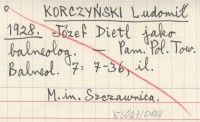 KORCZYŃSKI Ludomił
1928. Józef Dietl jako
balneolog. — Pam. Pol. Tow.
Balneol. 7: 7-36, il.
M. in. Szczawnica.